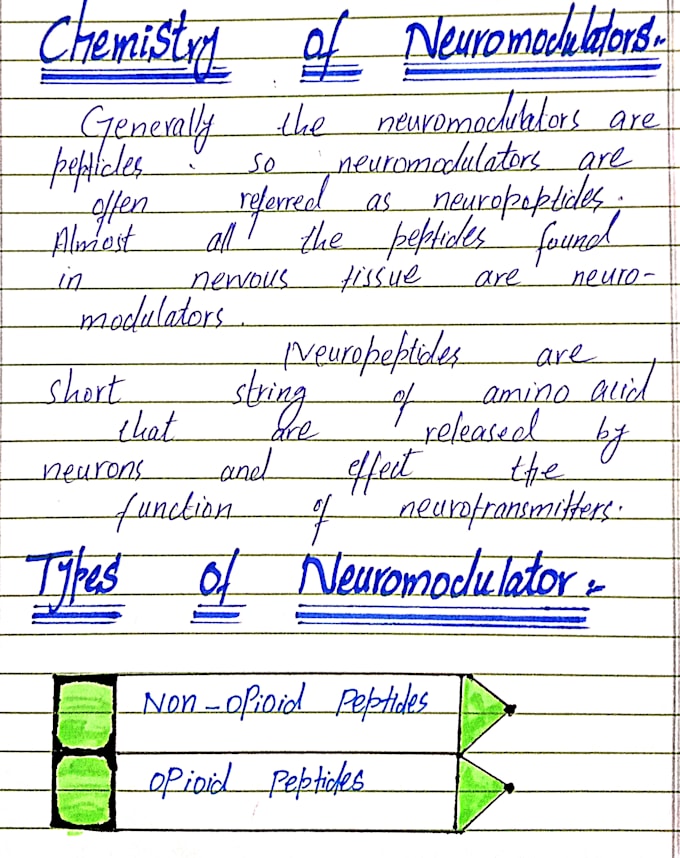 Chemistry of Neuromodulators:-
Generally the neuromodulators are
peptides. so neuromodulators are
often referred as neuropeptides.
Almost all the peptides found
in nervous tissue are neuro-
modulators.
Neuropeptides are
short string of amino acid
that are released by
neurons and effect the
function of neurotransmitters.
Types of Neuromodulator:-
Non-opioid Peptides
opioid Peptides